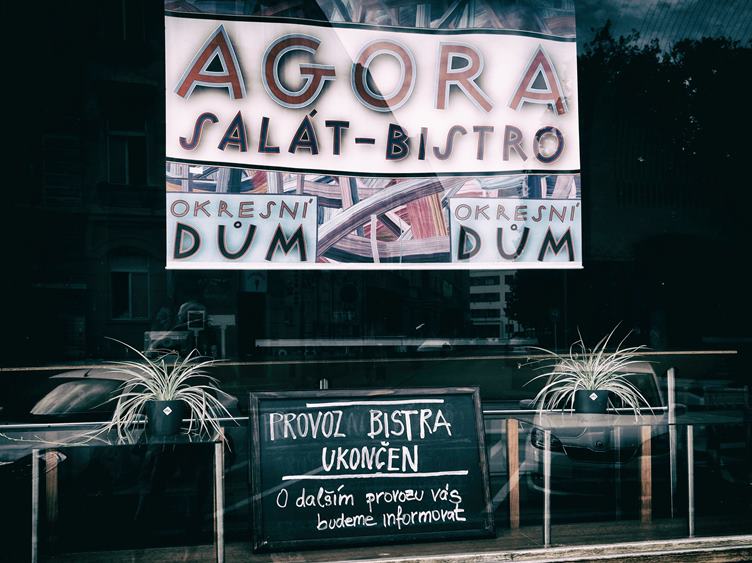 AGORA
SALÁT-BISTRO
OKRESNÍ
DŮM
OKRESNÍ
DŮM
PROVOZ BISTRA
UKONČEN
O dalším provozu vás
budeme informovat